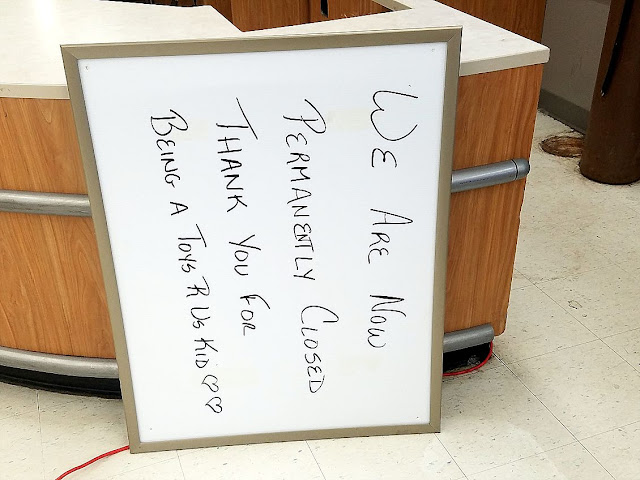 We Are Now
Permanently Closed
Thank You For
Being A Toys R Us Kid ♡♡